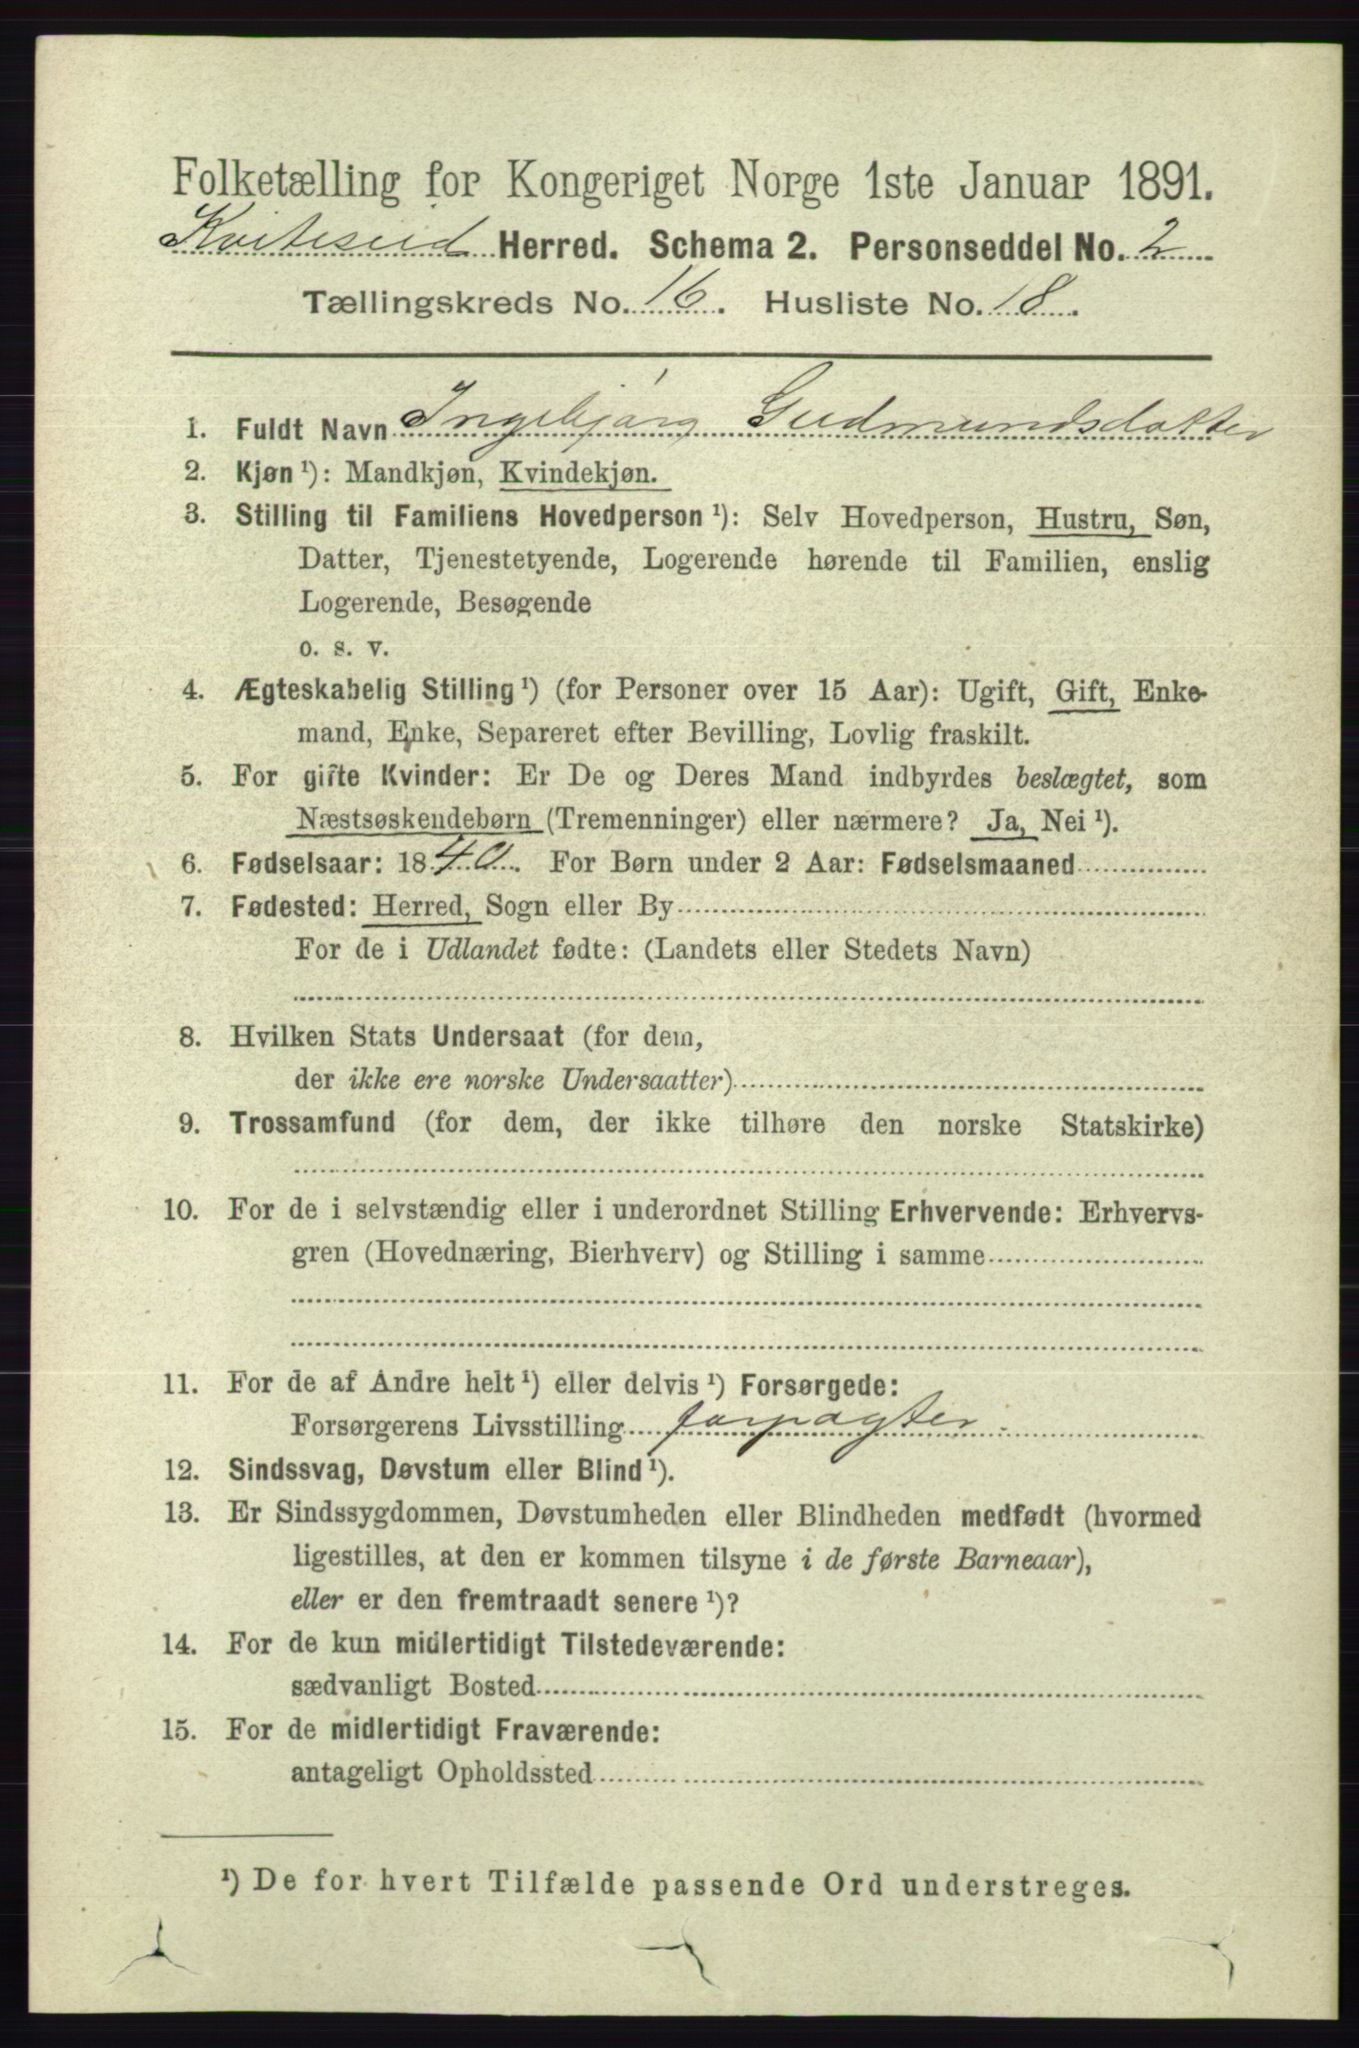 Folketælling for Kongeriget Norge 1ste Januar 1891.
Kviteseid Herred. Schema 2. Personseddel No. 2
Tællingskreds No. 16. Husliste No. 18.
1. Fuldt Navn Ingebjørg Gudmundsdatter
2. Kjøn ¹): Mandkjøn, Kvindekjøn.
3. Stilling til Familiens Hovedperson ¹): Selv Hovedperson, Hustru, Søn,
Datter, Tjenestetyende, Logerende hørende til Familien, enslig
Logerende, Besøgende
o. s. v.
4. Ægteskabelig Stilling ¹) (for Personer over 15 Aar): Ugift, Gift, Enke-
mand, Enke, Separeret efter Bevilling, Lovlig fraskilt.
5. For gifte Kvinder: Er De og Deres Mand indbyrdes beslægtet, som
Næstsøskendebørn (Tremenninger) eller nærmere? Ja, Nei ¹).
6. Fødselsaar: 1840. For Børn under 2 Aar: Fødselsmaaned
7. Fødested: Herred, Sogn eller By
For de i Udlandet fødte: (Landets eller Stedets Navn)
8. Hvilken Stats Undersaat (for dem,
der ikke ere norske Undersaatter)
9. Trossamfund (for dem, der ikke tilhøre den norske Statskirke)
10. For de i selvstændig eller i underordnet Stilling Erhvervende: Erhvervs-
gren (Hovednæring, Bierhverv) og Stilling i samme
11. For de af Andre helt ¹) eller delvis ¹) Forsørgede:
Forsørgerens Livsstilling forpagter.
12. Sindssvag, Døvstum eller Blind ¹).
13. Er Sindssygdommen, Døvstumheden eller Blindheden medfødt (hvormed
ligestilles, at den er kommen tilsyne i de første Barneaar),
eller er den fremtraadt senere ¹)?
14. For de kun midlertidigt Tilstedeværende:
sædvanligt Bosted
15. For de midlertidigt Fraværende:
antageligt Opholdssted
¹) De for hvert Tilfælde passende Ord understreges.